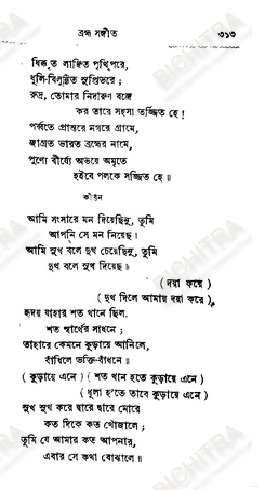 ব্রহ্ম সঙ্গীত ৩১৩
ধিক্কৃত লাঞ্ছিত পৃথ্বিপরে,
ধূলি-বিলুণ্ঠিত সুপ্তিভরে;
রুদ্র, তোমার নিদারুণ বজ্রে
কর তারে সহসা তর্জ্জিত হে!
পর্ব্বতে প্রান্তরে নগরে গ্রামে,
জাগ্রত ভারত ব্রহ্মের নামে,
পুণ্যে বীর্য্যে অভয়ে অমৃতে
হইবে পলকে সজ্জিত হে॥
কীর্ত্তন
আমি সংসারে মন দিয়েছিনু, তুমি
আপনি সে মন নিয়েছ।
আমি সুখ বলে দুখ চেয়েছিনু, তুমি
দুখ বলে সুখ দিয়েছ॥
(দয়া করে)
(দুখ দিলে আমায় দয়া করে)
হৃদয় যাহার শত খানে ছিল
শত স্বার্থের সাধনে;
তাহারে কেমনে কুড়ায়ে আনিলে,
বাঁধিলে ভক্তি-বাঁধনে॥
(কুড়ায়ে এনে) (শত খান হতে কুড়ায়ে এনে)
(ধূলা হ'তে তারে কুড়ায়ে এনে)
সুখ সুখ করে দ্বারে দ্বারে মোরে
কত দিকে কত খোঁজালে;
তুমি যে আমার কত আপনার,
এবার সে কথা বোঝালে॥
BICHITRA